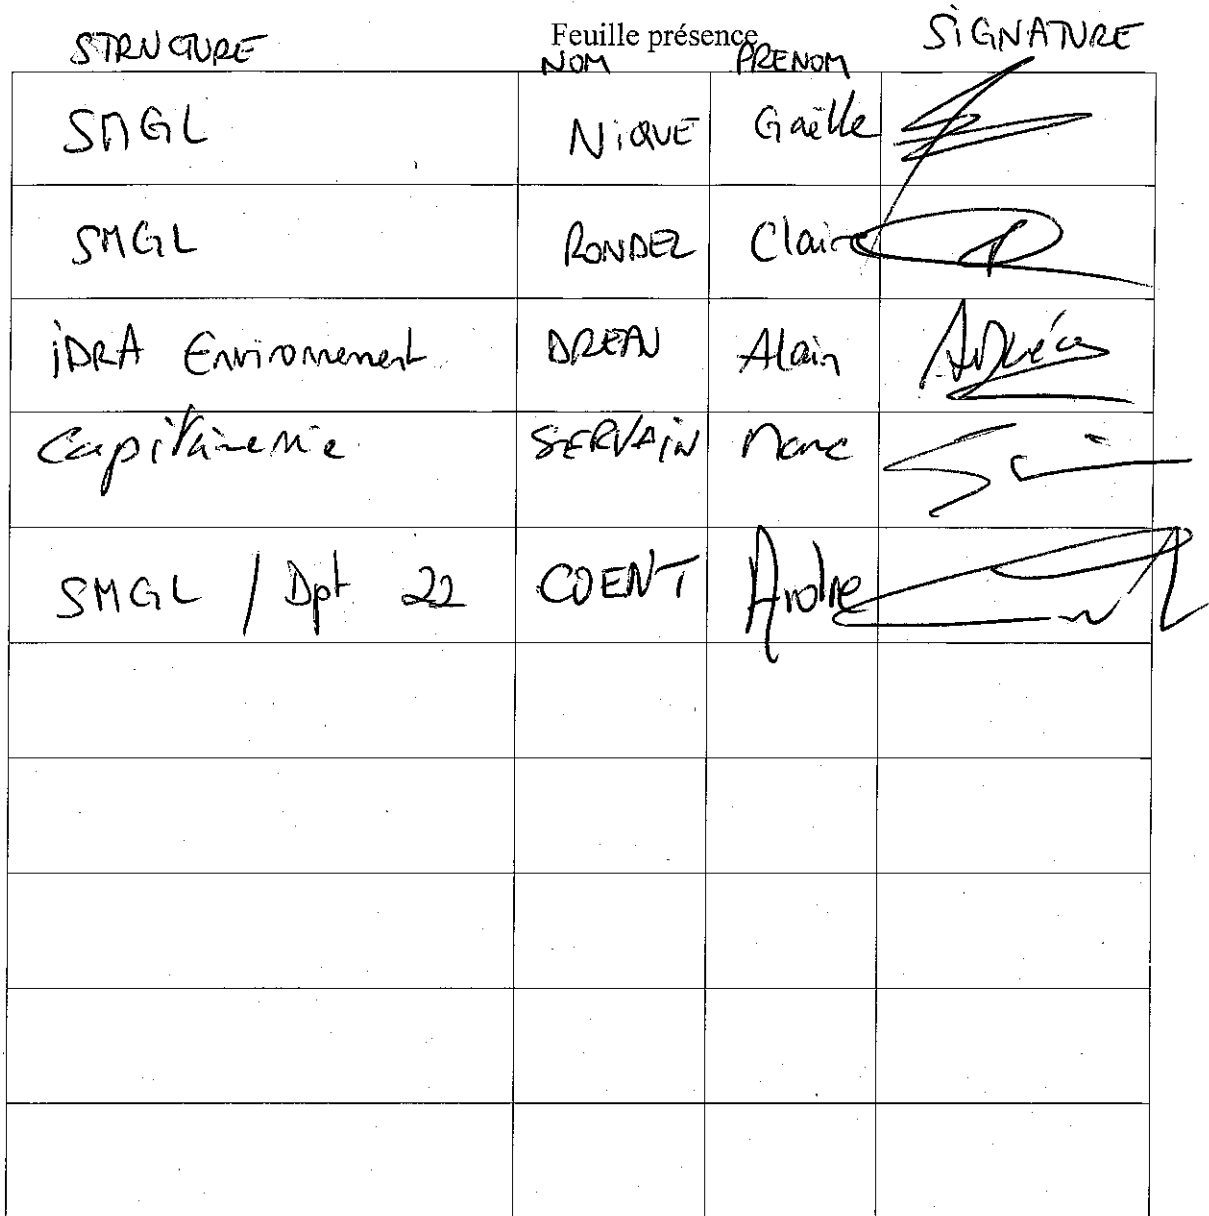 Feuille présence
STRUCTURE NOM PRENOM SIGNATURE
SMGL NIQUE Gaëlle
SMGL RONDEL Claire
iDRA Environnement DREAN Alain ADréan
Capitainerie SERVAIN Marc
SMGL / Dpt 22 COENT Andre